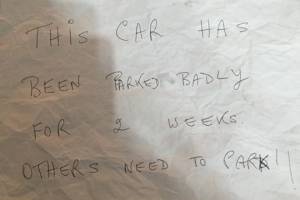 THiS CAR HAS
BEEN PARKED BADLY
FOR 2 WEEKS
OTHERS NEED TO PARK!!